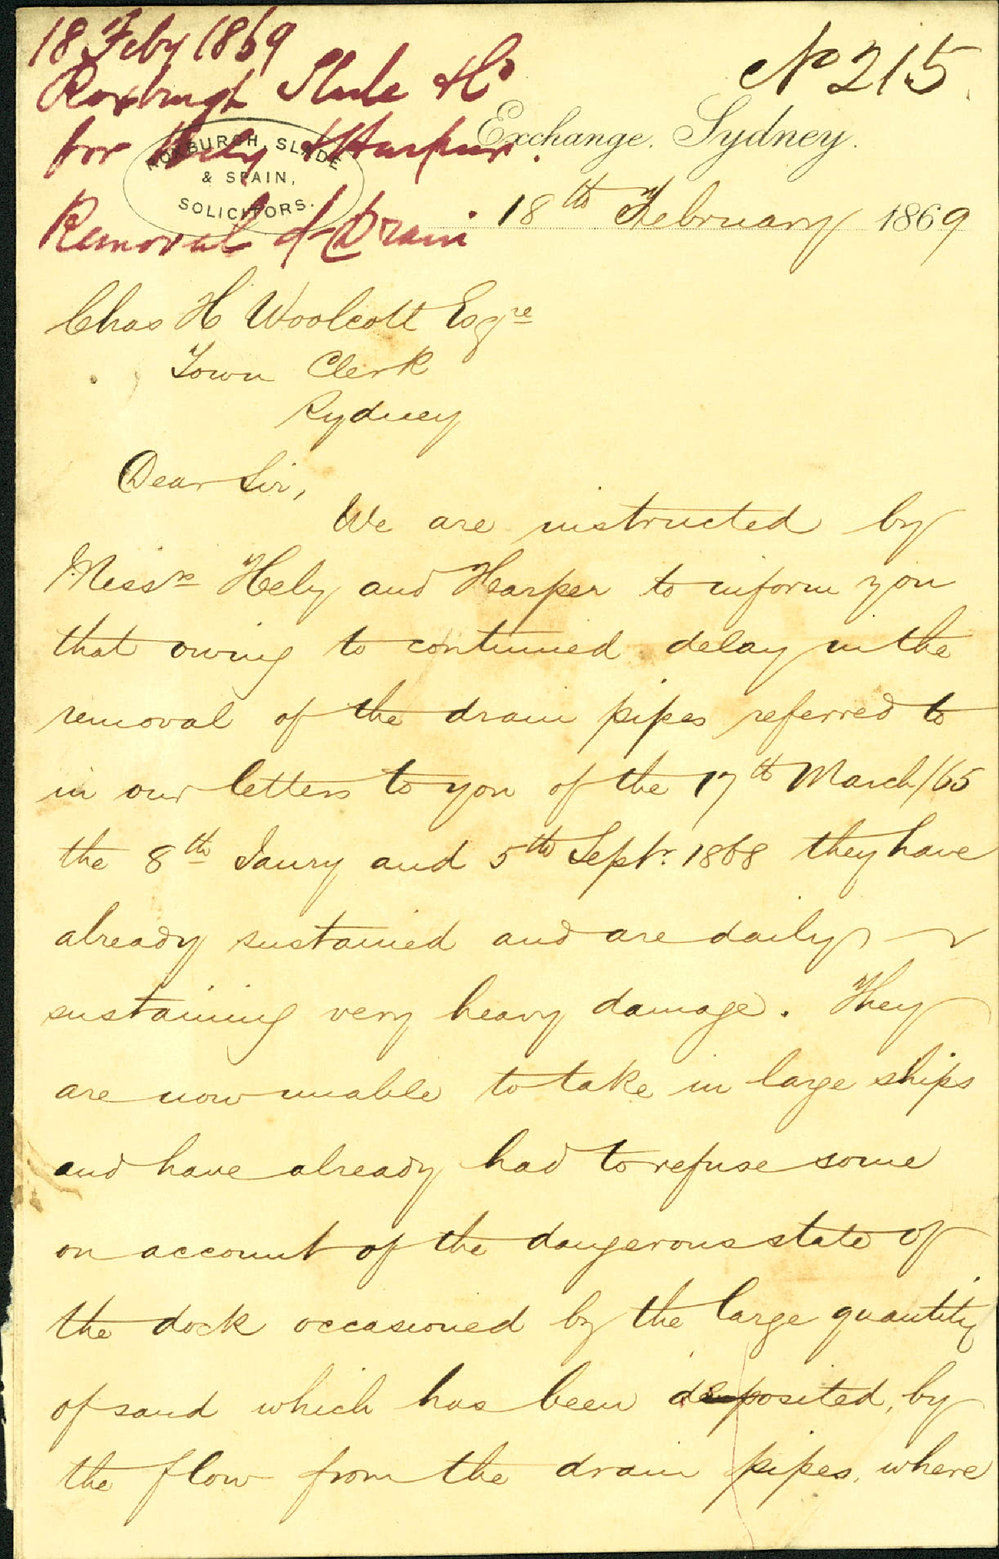 18 Feby 1869
Roxburgh Slade & Co
for Hely & Harper.
Removal of Drain
No 215.
ROXBURGH, SLADE
& SPAIN,
SOLICITORS.
Exchange. Sydney.
18th February 1869
Chas H Woolcott Esqre
Town Clerk
Sydney
Dear Sir,
We are instructed by
Messrs Hely and Harper to inform you
that owing to continued delay in the
removal of the drain pipes referred to
in our letters to you of the 17th March/65
the 8th Jaury and 5th Septr. 1868 they have
already sustained and are daily
sustaining very heavy damage. They
are now unable to take in large ships
and have already had to refuse some
on account of the dangerous state of
the dock occasioned by the large quantity
of sand which has been deposited, by
the flow from the drain pipes, where